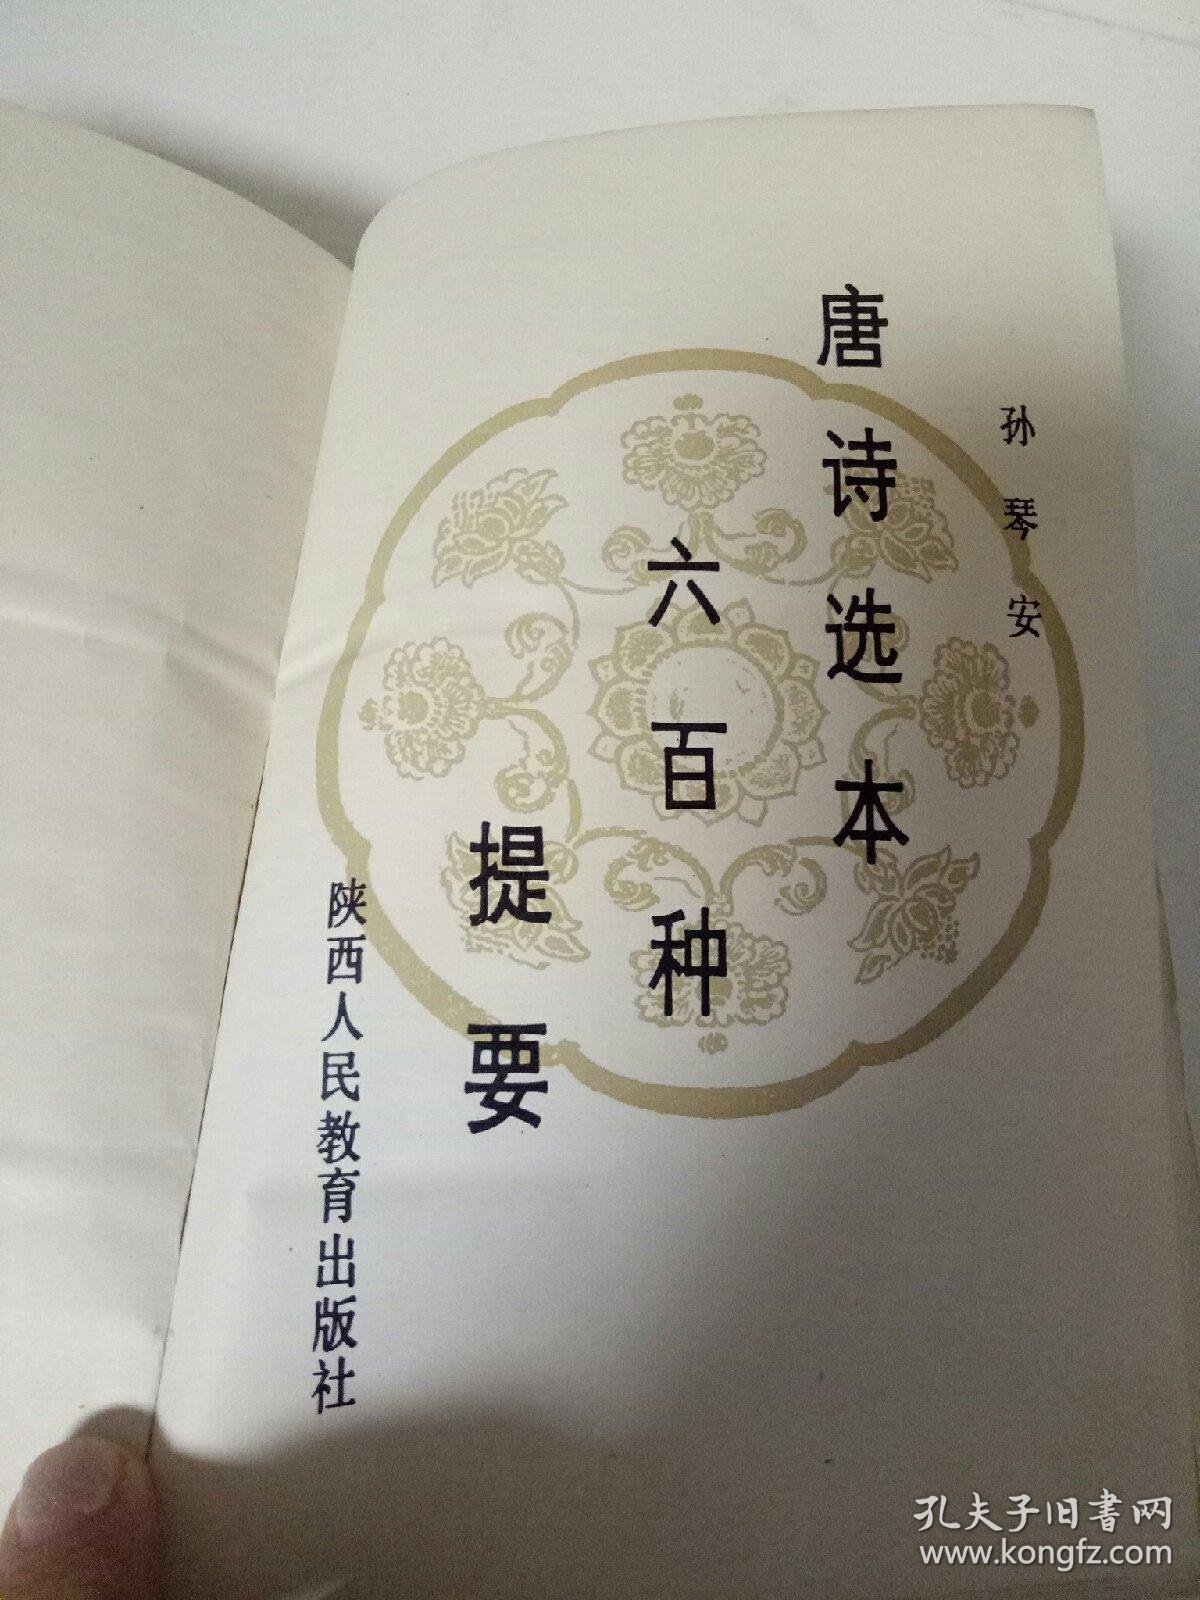 孙琴安
唐诗选本
六百种
提要
陕西人民教育出版社
孔夫子旧書网
www.kongfz.com